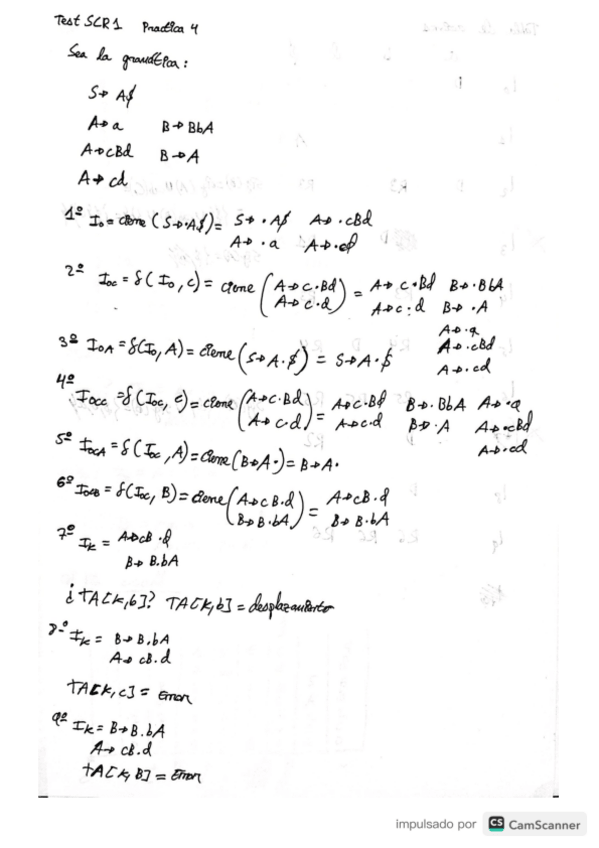 Test SCR1 Practica 4
Sea la gramática:
S→ A$
A→ a B→ BbA
A→cBd B→ A
A→ cd
1º I₀ = cierre (S→·A$) = S→ ·A$ A→ ·cBd
A→ ·a A→·cd
2º I₀c = δ(I₀, c) = cierre (A→ c·Bd = A→ c·Bd B→ ·BbA
A→ c·d) A→ c·d B→ ·A
A→·a
A→·cBd
A→·cd
3º I₀A = δ(I₀, A) = cierre (S→A·$) = S→A·$
4º I₀cc = δ(I₀c, c) = cierre (A→c·Bd = A→c·Bd B→·BbA A→·a
A→c·d) A→c·d B→·A A→·cBd
A→·cd
5º I₀cA = δ(I₀c, A) = cierre (B→A·) = B→A·
6º I₀cB = δ(I₀c, B) = cierre (A→cB·d = A→cB·d
B→B·bA) B→B·bA
7º Iₖ = A→cB·d
B→ B·bA
¿TA[k,b]? TA[k,b] = desplazamiento
8º Iₖ = B→B·bA
A→ cB·d
TA[k,c] = Error
9º Iₖ = B→B·bA
A→ cB·d
TA[k,B] = Error
impulsado por CS CamScanner